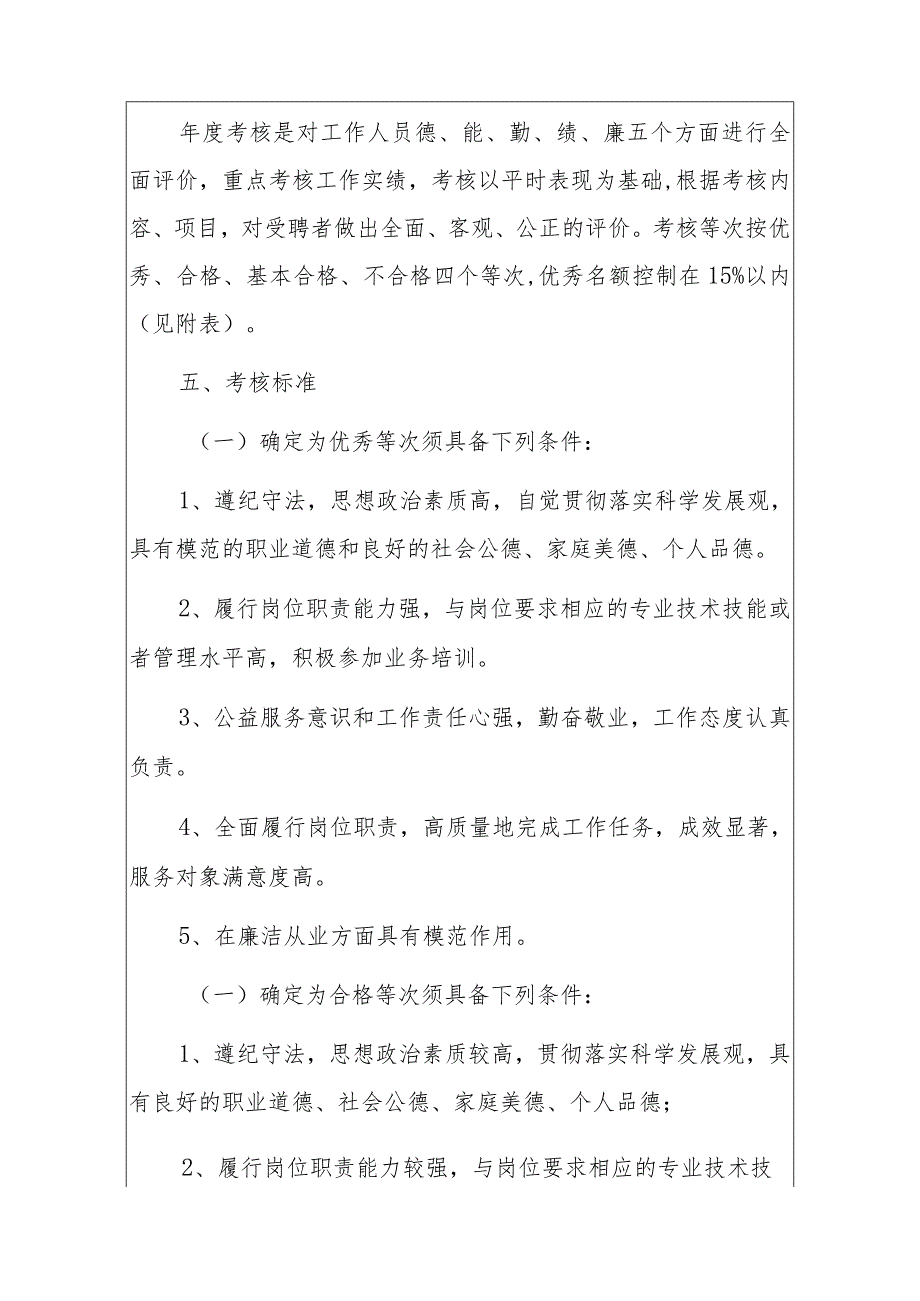 年度考核是对工作人员德、能、勤、绩、廉五个方面进行全
面评价，重点考核工作实绩，考核以平时表现为基础,根据考核内
容、项目，对受聘者做出全面、客观、公正的评价。考核等次按优
秀、合格、基本合格、不合格四个等次,优秀名额控制在 15%以内
（见附表）。
五、考核标准
（一）确定为优秀等次须具备下列条件：
1、遵纪守法，思想政治素质高，自觉贯彻落实科学发展观，
具有模范的职业道德和良好的社会公德、家庭美德、个人品德。
2、履行岗位职责能力强，与岗位要求相应的专业技术技能或
者管理水平高，积极参加业务培训。
3、公益服务意识和工作责任心强，勤奋敬业，工作态度认真
负责。
4、全面履行岗位职责，高质量地完成工作任务，成效显著，
服务对象满意度高。
5、在廉洁从业方面具有模范作用。
（一）确定为合格等次须具备下列条件：
1、遵纪守法，思想政治素质较高，贯彻落实科学发展观，具
有良好的职业道德、社会公德、家庭美德、个人品德；
2、履行岗位职责能力较强，与岗位要求相应的专业技术技